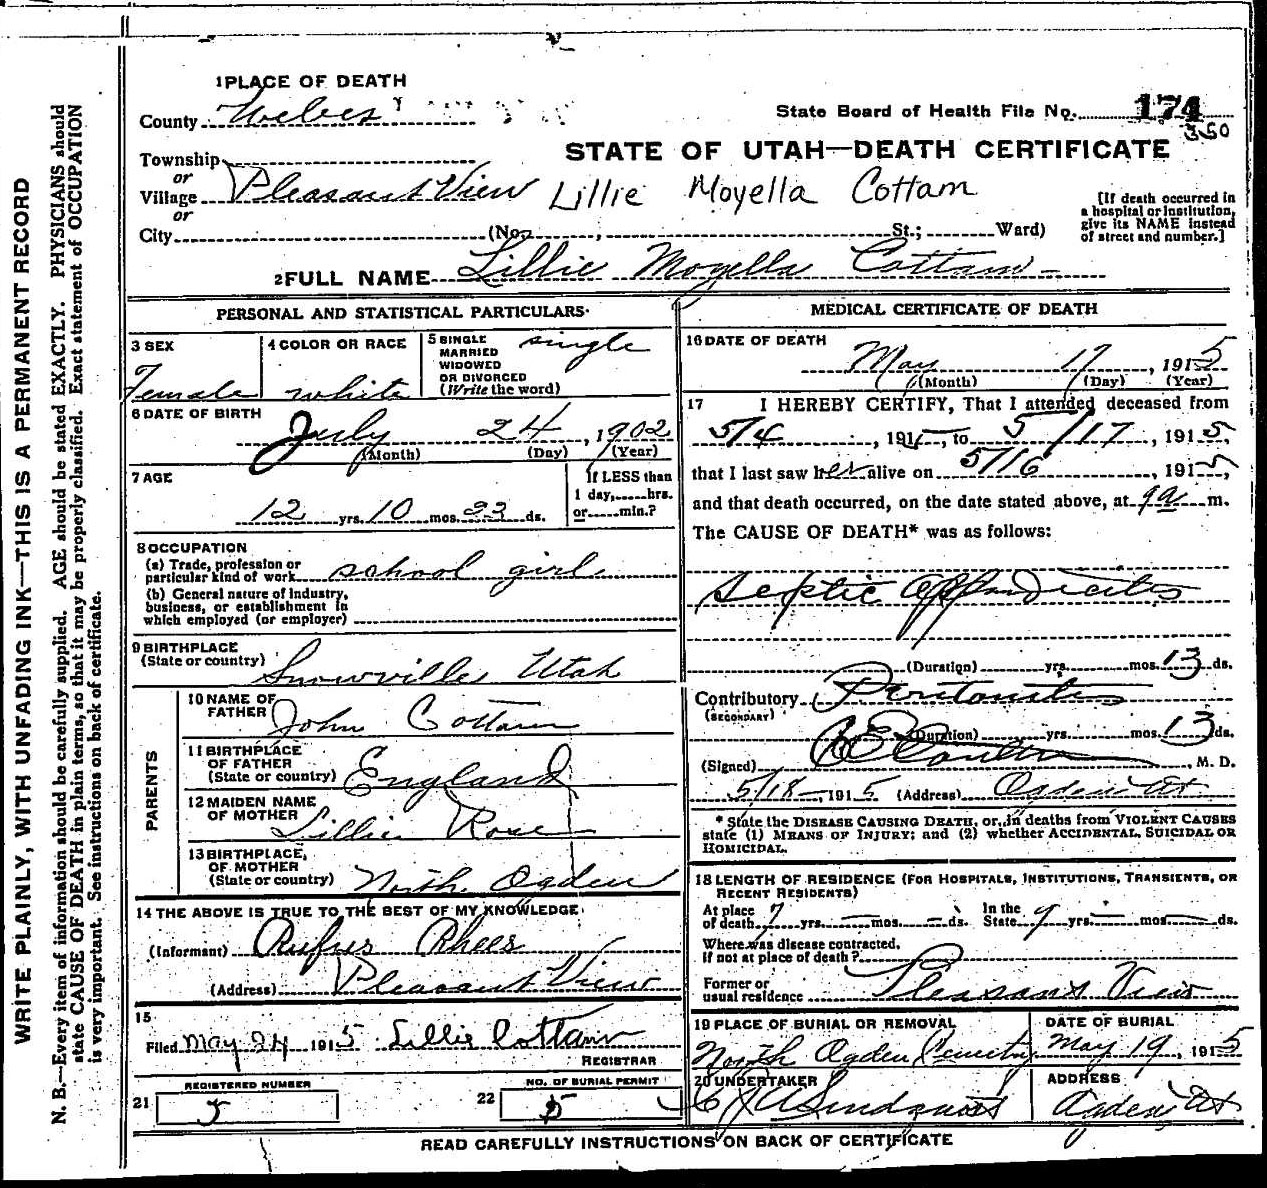 WRITE PLAINLY, WITH UNFADING INK—THIS IS A PERMANENT RECORD
N. B.—Every item of information should be carefully supplied. AGE should be stated EXACTLY. PHYSICIANS should
state CAUSE OF DEATH in plain terms, so that it may be properly classified. Exact statement of OCCUPATION
is very important. See instructions on back of certificate.
1 PLACE OF DEATH
County Weber
State Board of Health File No. 174
350
STATE OF UTAH—DEATH CERTIFICATE
Township
or
Village Pleasant View
Lillie Moyella Cottam
or
City (No. , St.; Ward)
[If death occurred in
a hospital or institution,
give its NAME instead
of street and number.]
2 FULL NAME Lillie Moyella Cottam
PERSONAL AND STATISTICAL PARTICULARS
3 SEX Female
4 COLOR OR RACE white
5 SINGLE
MARRIED
WIDOWED
OR DIVORCED
(Write the word) single
6 DATE OF BIRTH
July 24, 1902
(Month) (Day) (Year)
7 AGE
12 yrs. 10 mos. 23 ds.
If LESS than
1 day,......hrs.
or......min.?
8 OCCUPATION
(a) Trade, profession or
particular kind of work school girl
(b) General nature of industry,
business, or establishment in
which employed (or employer)
9 BIRTHPLACE
(State or country) Snowville Utah
PARENTS
10 NAME OF
FATHER John Cottam
11 BIRTHPLACE
OF FATHER
(State or country) England
12 MAIDEN NAME
OF MOTHER Lillie Rose
13 BIRTHPLACE
OF MOTHER
(State or country) North Ogden
14 THE ABOVE IS TRUE TO THE BEST OF MY KNOWLEDGE
(Informant) Rufus Rhees
(Address) Pleasant View
15
Filed May 24 1915 Lillie Cottam
REGISTRAR
REGISTERED NUMBER
21 5
NO. OF BURIAL PERMIT
22 5
MEDICAL CERTIFICATE OF DEATH
16 DATE OF DEATH
May 17, 1915
(Month) (Day) (Year)
17 I HEREBY CERTIFY, That I attended deceased from
5/4, 1915, to 5/17, 1915,
that I last saw her alive on 5/16, 1915
and that death occurred, on the date stated above, at 9 a m.
The CAUSE OF DEATH* was as follows:
Septic Appendicitis
(Duration) yrs. mos. 13 ds.
Contributory Peritonitis
(SECONDARY)
(Duration) yrs. mos. 13 ds.
(Signed) Coulter, M. D.
5/18—, 1915 (Address) Ogden Ut
* State the DISEASE CAUSING DEATH, or, in deaths from VIOLENT CAUSES
state (1) MEANS OF INJURY; and (2) whether ACCIDENTAL, SUICIDAL OR
HOMICIDAL.
18 LENGTH OF RESIDENCE (FOR HOSPITALS, INSTITUTIONS, TRANSIENTS, OR
RECENT RESIDENTS)
At place
of death 7 yrs. — mos. — ds. In the
State 9 yrs. — mos. — ds.
Where was disease contracted,
If not at place of death?
Former or
usual residence Pleasant View
19 PLACE OF BURIAL OR REMOVAL
North Ogden Cemetry
DATE OF BURIAL
May 19, 1915
20 UNDERTAKER
C J A Lindquist
ADDRESS
Ogden Ut
READ CAREFULLY INSTRUCTIONS ON BACK OF CERTIFICATE